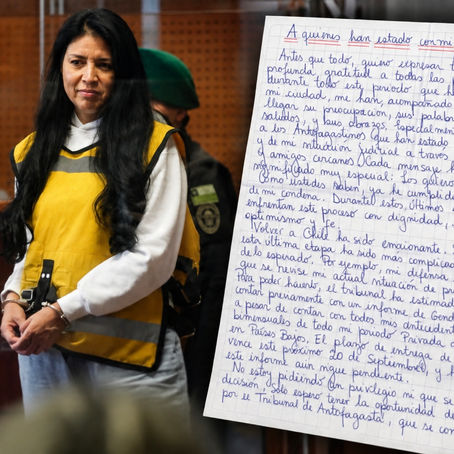 A quiénes han estado conmi
Antes que todo, quiero expresar t
profunda gratitud a todas las
durante todo este período que h
mi ciudad, me han acompañado
llegar su preocupación, sus palab
saludos, y sus abrazos. Especialmen
a los Antofagastinos que han estado
y de mi situación judicial a través
y amigos cercanos. Cada mensaje h
significado muy especial: Los quiero
Como ustedes saben, ya he cumplid
de mi condena. Durante estos últimos
enfrentan este proceso con dignidad,
optimismo y fe.
Volver a Chile ha sido emocionante.
esta última etapa ha sido más complica
de lo esperado. Por ejemplo, mi defensa
que se revise mi actual situación de pri
Para poder hacerlo, el tribunal ha estimad
contar previamente con un informe de Gend
a pesar de contar con todos mis antecedent
bimensuales de todo mi período Privada d
en Países Bajos. El plazo de entrega de
vence este próximo 20 de Septiembre, y h
este informe aún sigue pendiente.
No estoy pidiendo un privilegio ni que se
decisión, sólo espero tener la oportunidad de
por el Tribunal de Antofagasta, que se con